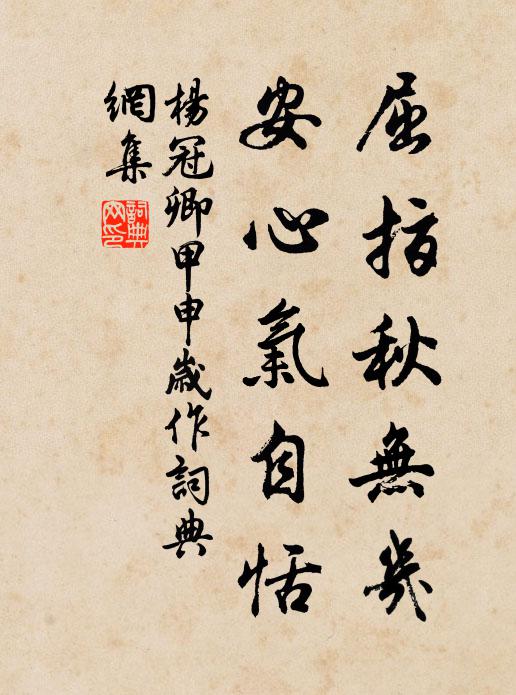 屈指秋無幾
安心氣自恬
楊冠卿甲申歲作詞典
網集
詞典
网印